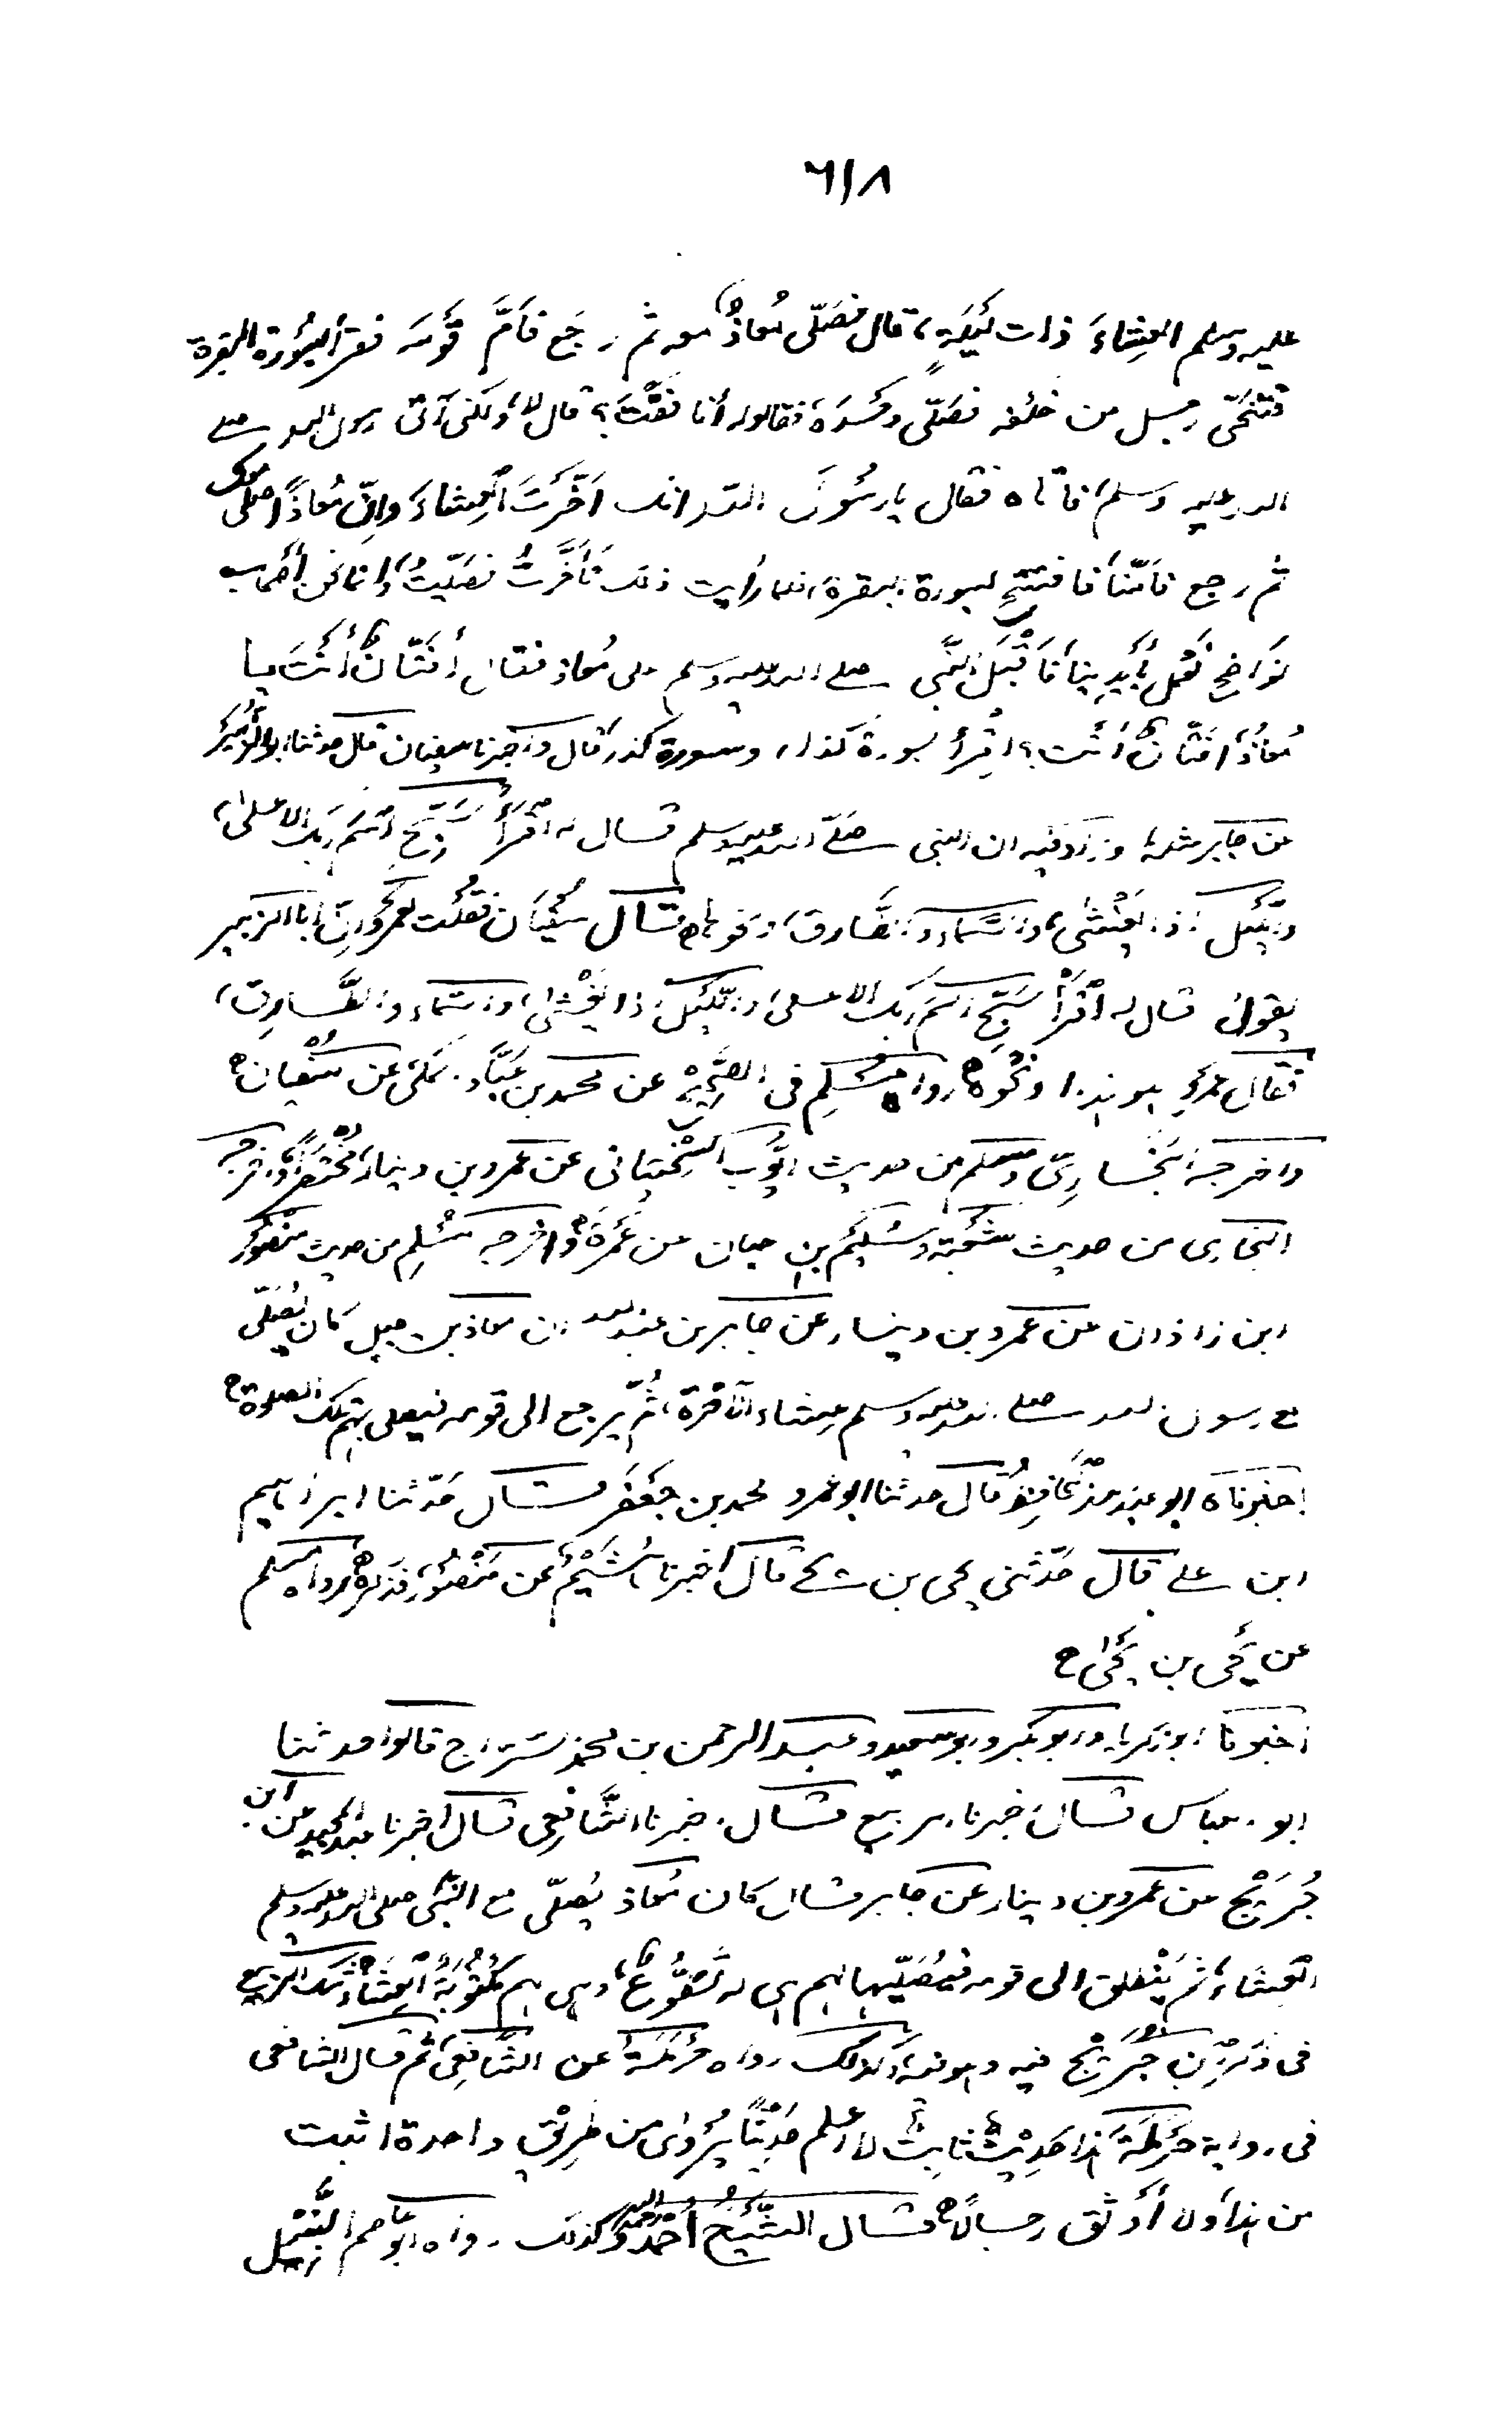 ٦١٨
عليه وسلم العِشاءَ ذات لَيْلَةٍ، قال فصَلّى مُعاذٌ معه ثم رجَع فأمَّ قَوْمَه فقرأ بسُورة البقرة
فتنحّى رجل من خلفه فصَلّى وحْدَه، فقالوا له أنافَقْتَ؟ قال لا، ولكنى آتى رسول الله صلى
الله عليه وسلم، فأتاه فقال يا رسُولَ الله انك أخَّرْتَ العِشاءَ وإنّ مُعاذًا صلى معك
ثم رجع فأمّنا، فافتتح بسورة البقرة، فلما رأيت ذلك تَأخَّرْتُ فصَلّيْتُ، وانما نحن أصحاب
نَواضِحِ نَعْمَل بأيدينا، فأقْبَلَ النّبى صلى الله عليه وسلم على مُعاذ فقال أفَتّانٌ أنْتَ يا
مُعاذُ، افَتّانٌ أنْت؟ اقْرأ بسورة كذا، وسورة كذا، قال وأخبرنا سفيان قال حدثنا ابو الزُّبَيْر
عن جابر مثله، وزاد فيه ان النبى صَلّى الله عليه وسلم قال له اقْرَأْ سَبّحِ اسْمَ رَبك الاعلى،
والَّيْل اذا يَغْشٰى، والسَّماء والطَّارق، ونحوها ه قال سُفْيَان فقُلْت لعَمْرٍو إنّ ابا الزبير
يقول قال له اقْرَأْ سَبّح اسْمَ رَبك الاعلىٰ، والَّيْلِ اذا يَغْشٰى، والسّماء والطَّارِق،
فقال عَمْرٌو هو هذا، او نَحْوه ه رواه مُسْلِم فى الصَّحِيْح عن محمد بن عَبّاد المكّى عن سُفْيان ه
واخرجه البُخارِىّ ومسلم من حديث ايّوب السّخْتيانى عن عمرو بن دينار، مُخْتَصَرًا، واخرجه
البخارى من حديث شُعْبَة، وسُلَيْم بن حيان عن عَمْرو ه واخرجه مُسْلِم من حديث مَنْصُور
ابن زاذان عن عمرو بن دينار عن جابر بن عبد الله ان معاذ بن جبل كان يُصَلّى
مع رسول الله صلى الله عليه وسلم عشاء الآخرة، ثُمّ يرجع الى قومه فيصلى بهم تلك الصلوة ه
اخبرناه ابو عبد الله الحَافِظُ قال حدثنا ابو عمرو محمد بن جَعْفَر قال حَدّثنا ابراهيم
ابن على قال حَدّثنى يحيى بن يحيى قال اخبرنا هُشَيْمٌ عن مَنْصُوْر، فذكره ه رواه مُسلم
عن يَحْيى بن يَحْيٰى ه
اخبرنا ابو زكريا، وابو بكر، وابو سعيد، وعبد الرحمن بن محمد السَّراج قالوا حدثنا
ابو العباس قال اخبرنا الربيع قال اخبرنا الشَّافِعى قال اخبرنا عبد المجيد عن ابن
جُرَيْج عن عمرو بن دينار عن جابر قال كان مُعاذ يُصَلّى مع النّبى صلى الله عليه وسلم
العِشاء، ثم يَنْطَلق الى قومه فيُصَلّيها بهم هى له تَطَوُّعٌ، وهى لهم مَكْتُوْبَةُ العِشاء ه شك الربيع
فى ذكر ابن جُرَيْج فيه وهو فيه، وكذلك رواه حَرْمَلَةُ عن الشَّافِعى، ثم قال الشافعى
فى رواية حَرْمَلَةَ هذا حَدِيْثٌ ثابِتٌ لا اعلم حَدِيْثًا يُرْوٰى من طَرِيْقٍ واحدة اثبت
من هذا، ولا أوْثَق رجالاً ه قال الشَّيْخُ أحْمَد رحمه الله وكذلك رواه ابو عاصم النَّبِيْل